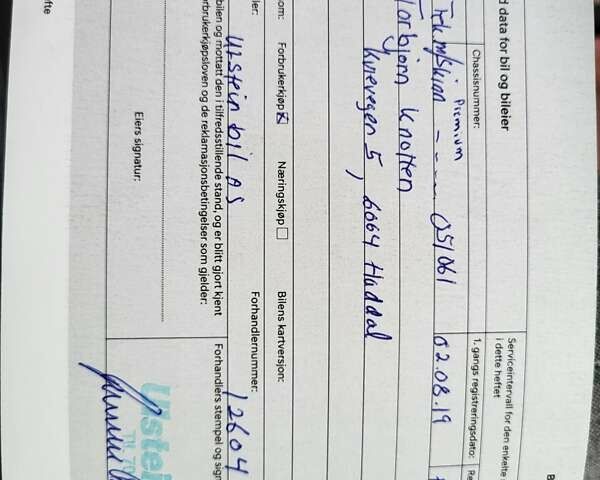 d data for bil og bileier
Serviceintervall for den enkelte
i dette heftet
Chassisnummer:
1. gangs registreringsdato:
Re
Premium
051061
02.08.19
Torbjørn Knotten
Kvievegen 5, 6064 Haddal
som:
Forbrukerkjøp
Næringskjøp
Bilens kartversjon:
ler:
Forhandlernummer:
Ulstein bil AS
12604
bilen og mottatt den i tilfredsstillende stand, og er blitt gjort kjent
orbrukerkjøpsloven og de reklamasjonsbetingelser som gjelder:
Forhandlers stempel og sign
Ulstei
Eiers signatur:
fte